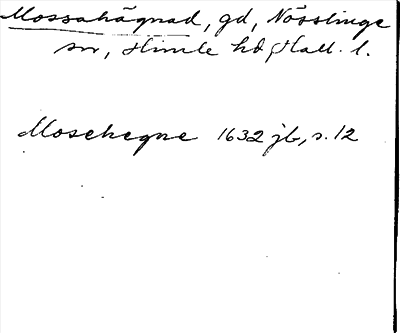 Mossahägnad, gd, Nösslinge
sn, Himle hd, Hall. l.
Mosehegne 1632 jb, s. 12